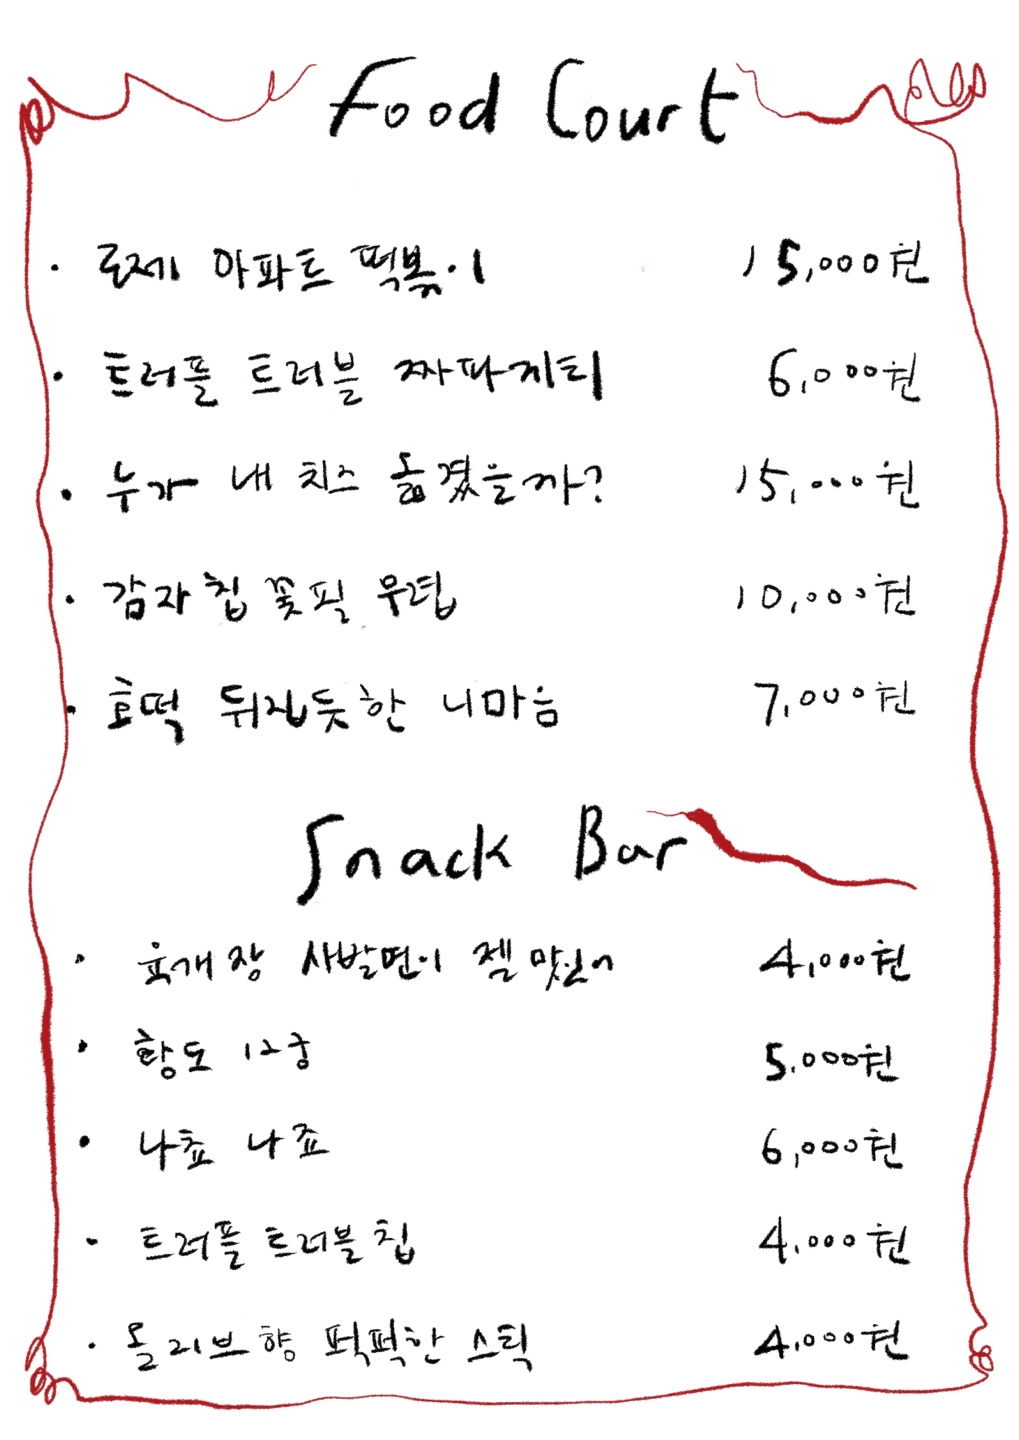 Food Court
· 로제 아파트 떡볶이 15,000원
· 트러플 트러블 짜파게티 6,000원
· 누가 내 치즈 옮겼을까? 15,000원
· 감자칩 꽃필 무렵 10,000원
· 호떡 뒤집듯한 니마음 7,000원
Snack Bar
· 육개장 사발면이 젤 맛있어 4,000원
· 황도 12궁 5,000원
· 나쵸 나죠 6,000원
· 트러플 트러블 칩 4,000원
· 올리브향 퍽퍽한 스틱 4,000원